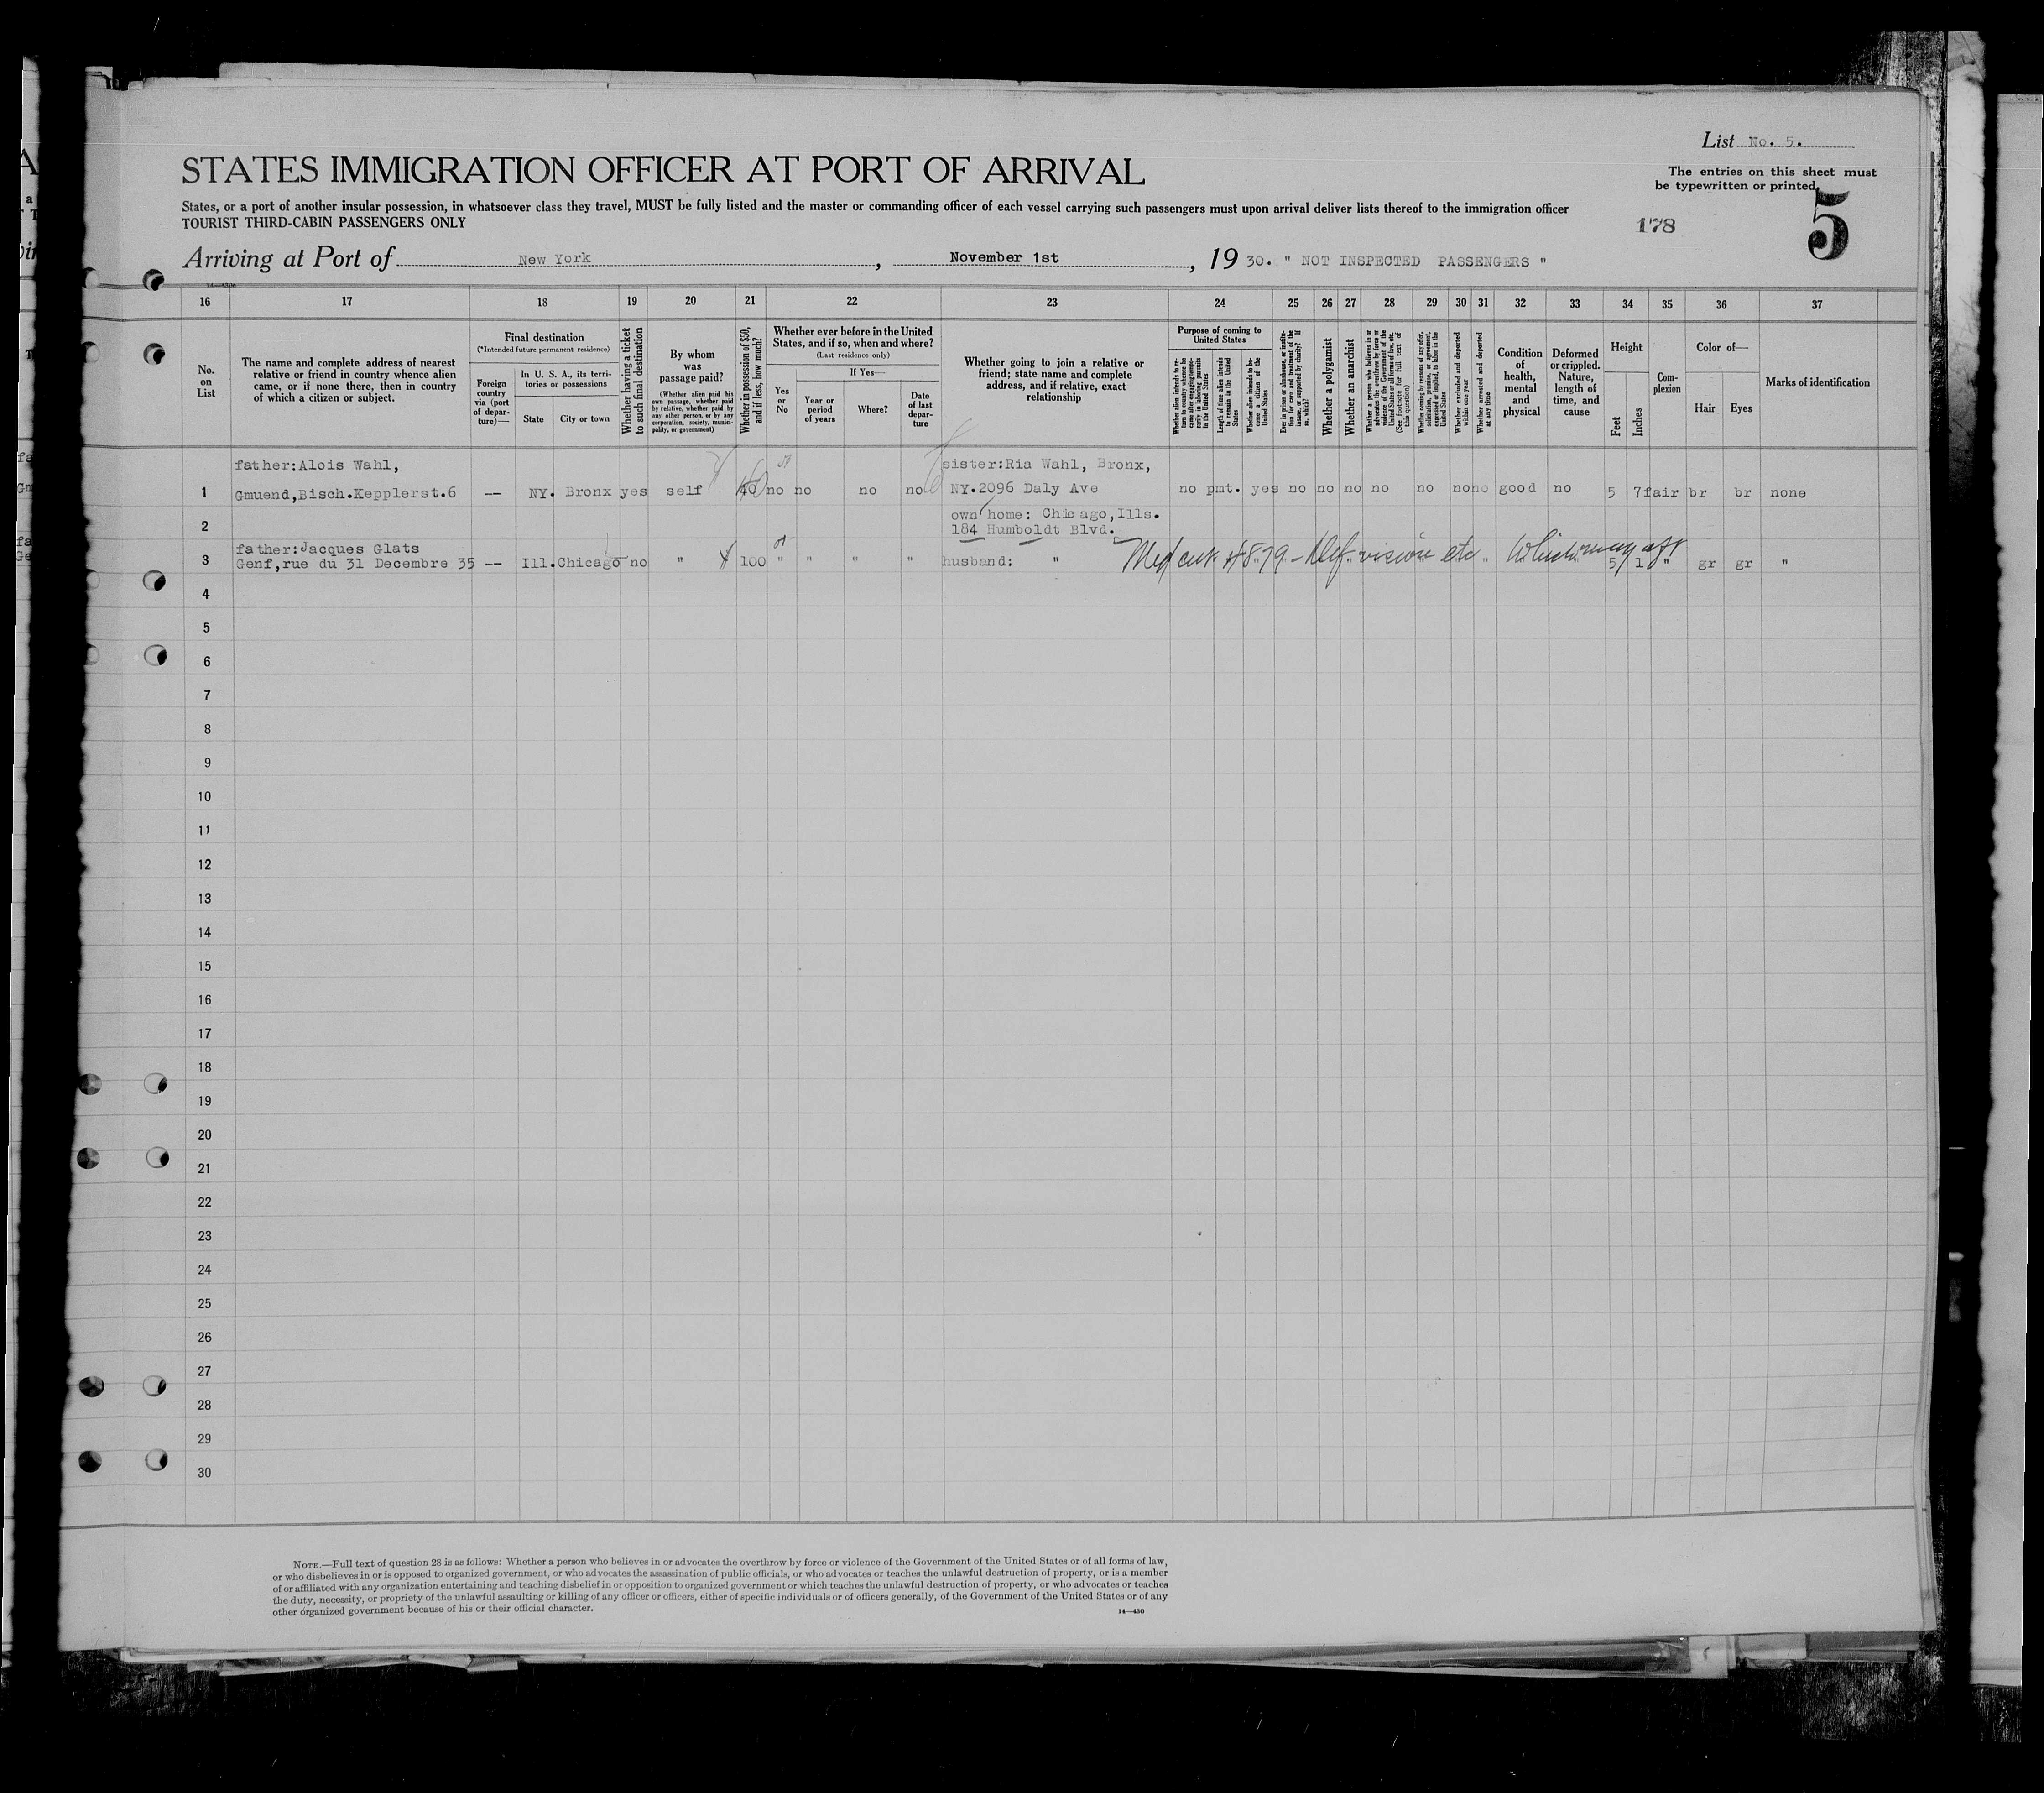 List No. 5.
STATES IMMIGRATION OFFICER AT PORT OF ARRIVAL
The entries on this sheet must
be typewritten or printed.
States, or a port of another insular possession, in whatsoever class they travel, MUST be fully listed and the master or commanding officer of each vessel carrying such passengers must upon arrival deliver lists thereof to the immigration officer
TOURIST THIRD-CABIN PASSENGERS ONLY
178
5
Arriving at Port of New York, November 1st, 19 30. " NOT INSPECTED PASSENGERS "
16 17 18 19 20 21 22 23 24 25 26 27 28 29 30 31 32 33 34 35 36 37
No.
on
List
The name and complete address of nearest
relative or friend in country whence alien
came, or if none there, then in country
of which a citizen or subject.
Final destination
(*Intended future permanent residence)
Foreign
country
via (port
of depar-
ture)—
In U. S. A., its terri-
tories or possessions
State
City or town
Whether having a ticket
to such final destination
By whom
was
passage paid?
(Whether alien paid his
own passage, whether paid
by relative, whether paid by
any other person, or by any
corporation, society, munici-
pality, or government)
Whether in possession of $50,
and if less, how much?
Whether ever before in the United
States, and if so, when and where?
(Last residence only)
Yes
or
No
If Yes—
Year or
period
of years
Where?
Date
of last
depar-
ture
Whether going to join a relative or
friend; state name and complete
address, and if relative, exact
relationship
Purpose of coming to
United States
Whether alien intends to re-
turn to country whence he
came after engaging tempo-
rarily in laboring pursuits
in the United States
Length of time alien intends
to remain in the United
States
Whether alien intends to be-
come a citizen of the
United States
Ever in prison or almshouse, or institu-
tion for care and treatment of the
insane, or supported by charity? If
so, which?
Whether a polygamist
Whether an anarchist
Whether a person who believes in or
advocates the overthrow by force or
violence of the Government of the
United States or all forms of law, etc.
(See footnote for full text of
this question)
Whether coming by reason of any offer,
solicitation, promise, or agreement,
expressed or implied, to labor in the
United States
Whether excluded and deported
within one year
Whether arrested and deported
at any time
Condition
of
health,
mental
and
physical
Deformed
or crippled.
Nature,
length of
time, and
cause
Height
Feet
Inches
Com-
plexion
Color of—
Hair
Eyes
Marks of identification
father:Alois Wahl,
sister:Ria Wahl, Bronx,
1 Gmuend,Bisch.Kepplerst.6 -- NY. Bronx yes self 40 no no no no NY.2096 Daly Ave no pmt. yes no no no no no no no good no 5 7 fair br br none
own home: Chicago,Ills.
2 184 Humboldt Blvd.
father:Jacques Glats
3 Genf,rue du 31 Decembre 35 -- Ill. Chicago no " 100 " " " " husband: " Med cert #879 - Def. vision etc which may aff 5 1 " gr gr "
4
5
6
7
8
9
10
11
12
13
14
15
16
17
18
19
20
21
22
23
24
25
26
27
28
29
30
NOTE.—Full text of question 28 is as follows: Whether a person who believes in or advocates the overthrow by force or violence of the Government of the United States or of all forms of law,
or who disbelieves in or is opposed to organized government, or who advocates the assassination of public officials, or who advocates or teaches the unlawful destruction of property, or is a member
of or affiliated with any organization entertaining and teaching disbelief in or opposition to organized government or which teaches the unlawful destruction of property, or who advocates or teaches
the duty, necessity, or propriety of the unlawful assaulting or killing of any officer or officers, either of specific individuals or of officers generally, of the Government of the United States or of any
other organized government because of his or their official character.
14—430